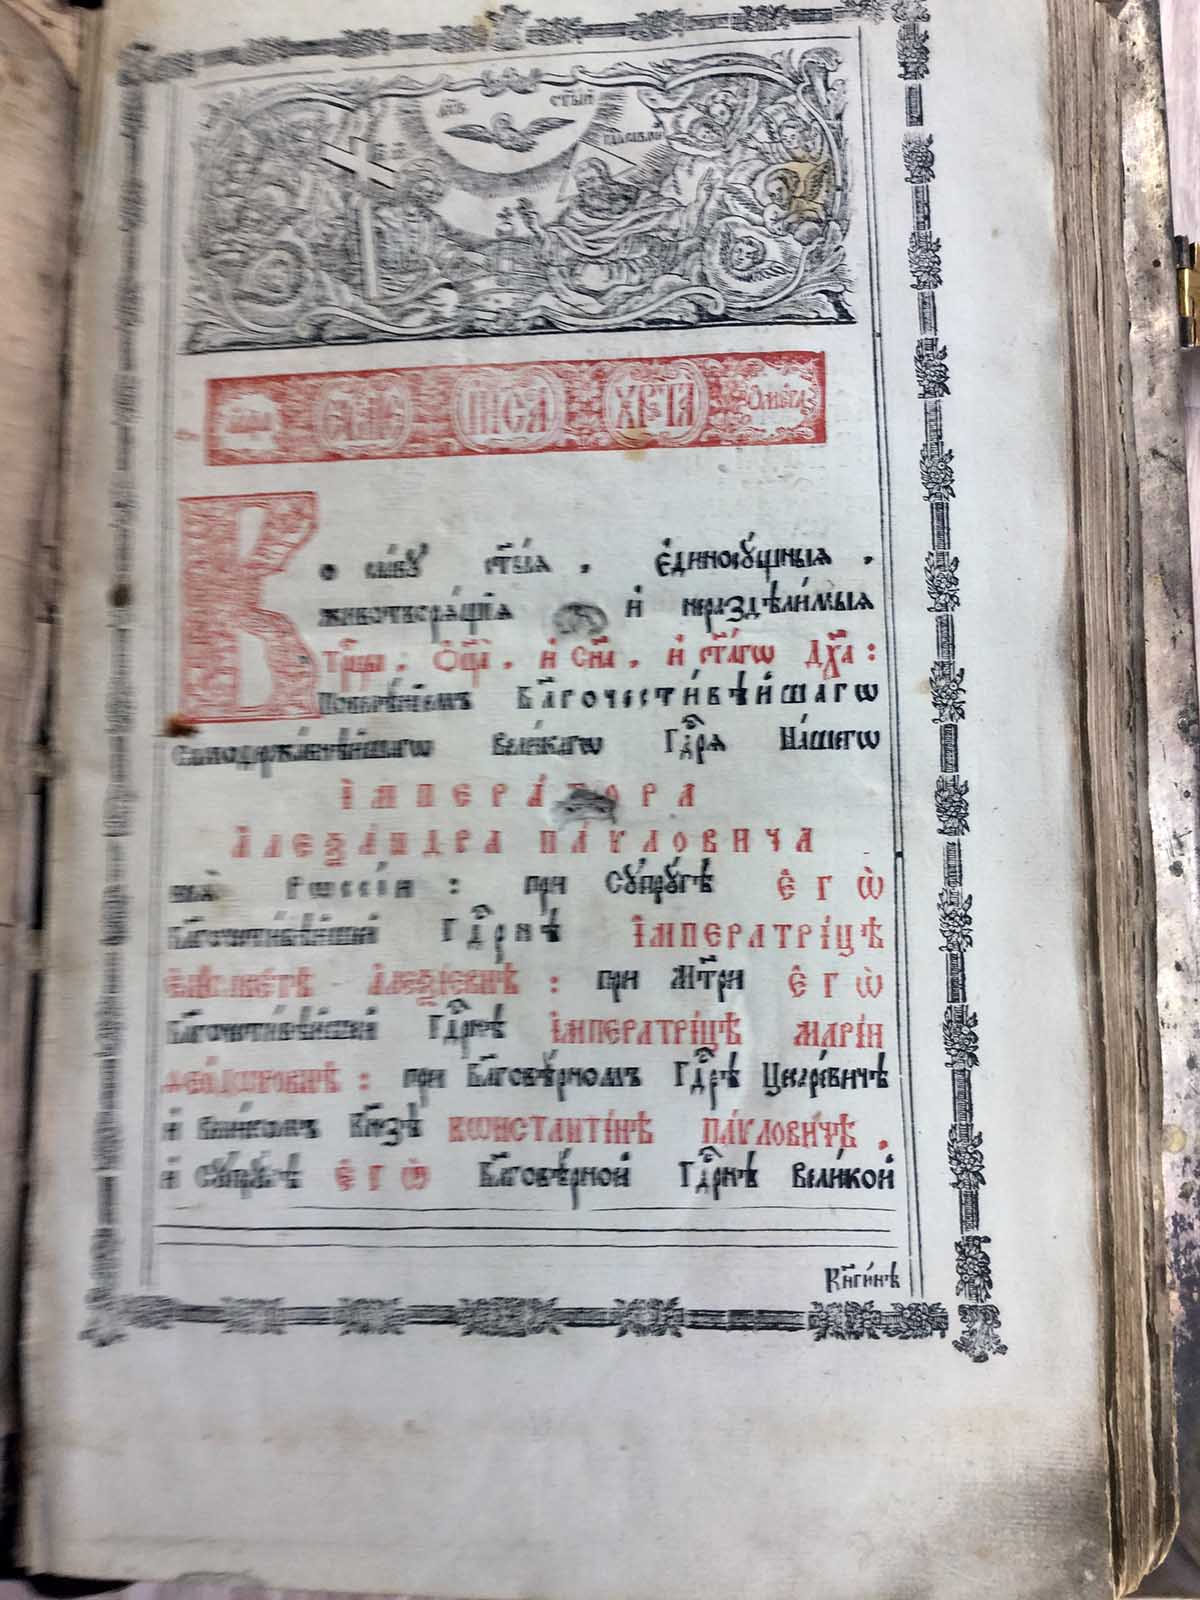 дх҃ъ ст҃ы́й
ПИСА̀ ХРС҇ТА̀ Ѻ҆ме́га
Во сла́вꙋ ст҃ы́ѧ , є҆диносꙋ́щныѧ ,
животворѧ́щїѧ и҆ нераздѣли́мыѧ
Трⷪ҇цы , Ѻ҆ц҃а̀ , и҆ Сн҃а , и҆ ст҃а́гѡ Дх҃а :
Повелѣ́нїемъ Бл҃гочести́вѣйшагѡ
самодержа́внѣйшагѡ вели́кагѡ Гдⷭ҇рѧ На́шегѡ
І҆МПЕРА́ТОРА
А҆ЛЕѮА́НДРА ПА́ѴЛОВИЧА
всеѧ̀ Рѡссі́и : при Сꙋпрꙋ́гѣ Є҆ГѠ̀
Бл҃гочести́вѣйшей Гдⷭ҇рнѣ І҆МПЕРАТРІ́ЦѢ
Є҆лїсаве́тѣ А҆леѯі́евнѣ : при Мт҃ри Є҆ГѠ̀
Бл҃гочести́вѣйшей Гдⷭ҇рнѣ І҆МПЕРАТРІ́ЦѢ МАРІ́И
Ѳео́дѡровнѣ : при Бл҃говѣ́рномъ Гдⷭ҇рѣ Цесаре́вичѣ
и҆ вели́комъ Кн҃зѣ КѠНСТАНТІ́НѢ ПА́ѴЛОВИЧѢ ,
и҆ Сꙋпрꙋ́гѣ Є҆ГѠ̀ Бл҃говѣ́рной Гдⷭ҇рнѣ Вели́кой
Кн҃ги́нѣ